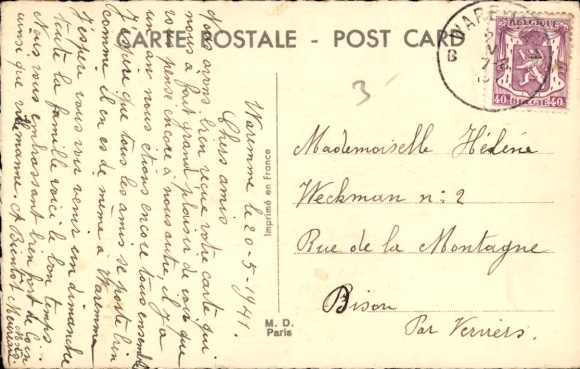 CARTE POSTALE - POST CARD
Waremme le 20-5-1941.
Chers amis
Nous avons bien reçue votre carte qui
nous a fait grand plaisir de voir que
vous pensé encore à nous autre, il y a
un an nous étions encore tous ensemble
J'espère que tous les amis se porte bien
comme il en es de même à Waremme
J'espère vous voir venir un dimanche
toute la famille voici le bon temps
Nous vous embrassant bien fort de loin
ainsi que maman. A Bientôt
Imprimé en France
M. D.
Paris
WAREMME
B
BELGIQUE
40 BELGIE 40
3
Mademoiselle Hélène
Weckman n: 2
Rue de la Montagne
Bison
Par Verviers.